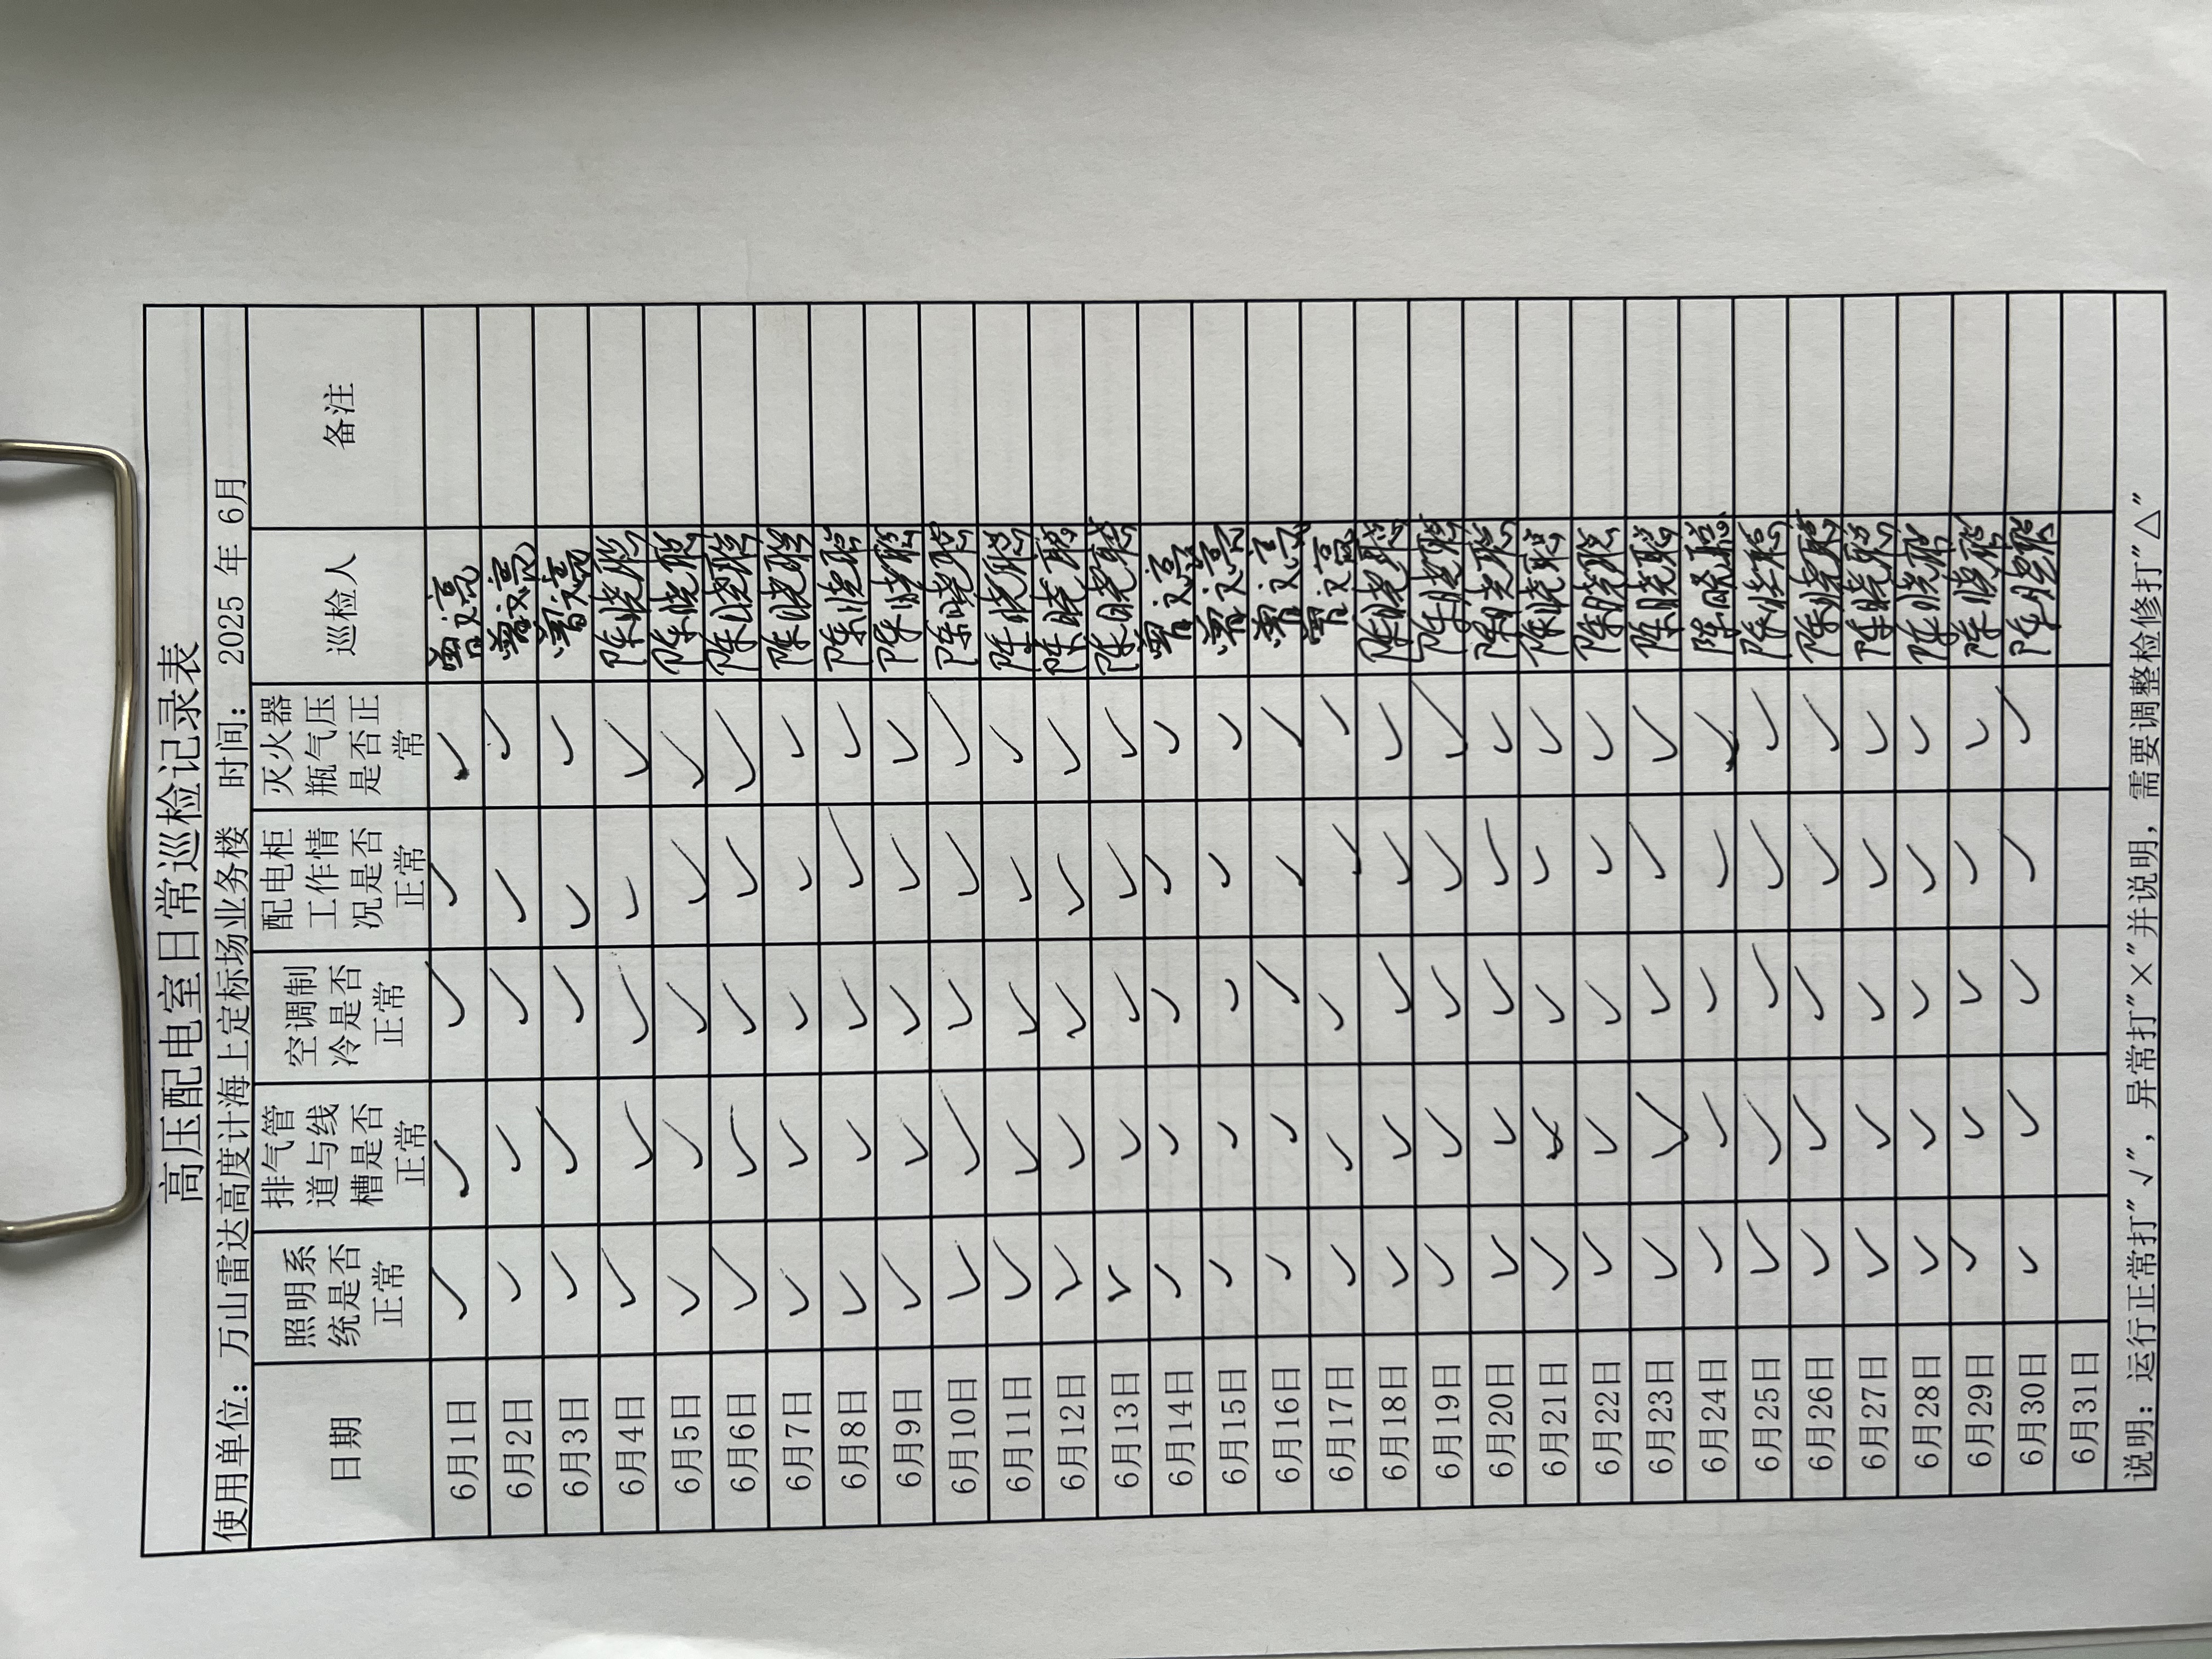 高压配电室日常巡检记录表
使用单位：万山雷达高度计海上定标场业务楼 时间：2025 年 6月
日期 照明系统是否正常 排气管道与线槽是否正常 空调制冷是否正常 配电柜工作情况是否正常 灭火器瓶气压是否正常 巡检人 备注
6月1日 ✓ ✓ ✓ ✓ ✓ 曾文亮
6月2日 ✓ ✓ ✓ ✓ ✓ 曾文亮
6月3日 ✓ ✓ ✓ ✓ ✓ 曾文亮
6月4日 ✓ ✓ ✓ ✓ ✓ 陈晓聪
6月5日 ✓ ✓ ✓ ✓ ✓ 陈晓聪
6月6日 ✓ ✓ ✓ ✓ ✓ 陈晓聪
6月7日 ✓ ✓ ✓ ✓ ✓ 陈晓聪
6月8日 ✓ ✓ ✓ ✓ ✓ 陈晓聪
6月9日 ✓ ✓ ✓ ✓ ✓ 陈晓聪
6月10日 ✓ ✓ ✓ ✓ ✓ 陈晓聪
6月11日 ✓ ✓ ✓ ✓ ✓ 陈晓聪
6月12日 ✓ ✓ ✓ ✓ ✓ 陈晓聪
6月13日 ✓ ✓ ✓ ✓ ✓ 陈晓聪
6月14日 ✓ ✓ ✓ ✓ ✓ 曾文亮
6月15日 ✓ ✓ ✓ ✓ ✓ 曾文亮
6月16日 ✓ ✓ ✓ ✓ ✓ 曾文亮
6月17日 ✓ ✓ ✓ ✓ ✓ 曾文亮
6月18日 ✓ ✓ ✓ ✓ ✓ 陈晓聪
6月19日 ✓ ✓ ✓ ✓ ✓ 陈晓聪
6月20日 ✓ ✓ ✓ ✓ ✓ 陈晓聪
6月21日 ✓ ✓ ✓ ✓ ✓ 陈晓聪
6月22日 ✓ ✓ ✓ ✓ ✓ 陈晓聪
6月23日 ✓ ✓ ✓ ✓ ✓ 陈晓聪
6月24日 ✓ ✓ ✓ ✓ ✓ 陈晓聪
6月25日 ✓ ✓ ✓ ✓ ✓ 陈晓聪
6月26日 ✓ ✓ ✓ ✓ ✓ 陈晓聪
6月27日 ✓ ✓ ✓ ✓ ✓ 陈晓聪
6月28日 ✓ ✓ ✓ ✓ ✓ 陈晓聪
6月29日 ✓ ✓ ✓ ✓ ✓ 陈晓聪
6月30日 ✓ ✓ ✓ ✓ ✓ 陈晓聪
6月31日
说明：运行正常打"√"，异常打"×"并说明，需要调整检修打"△"